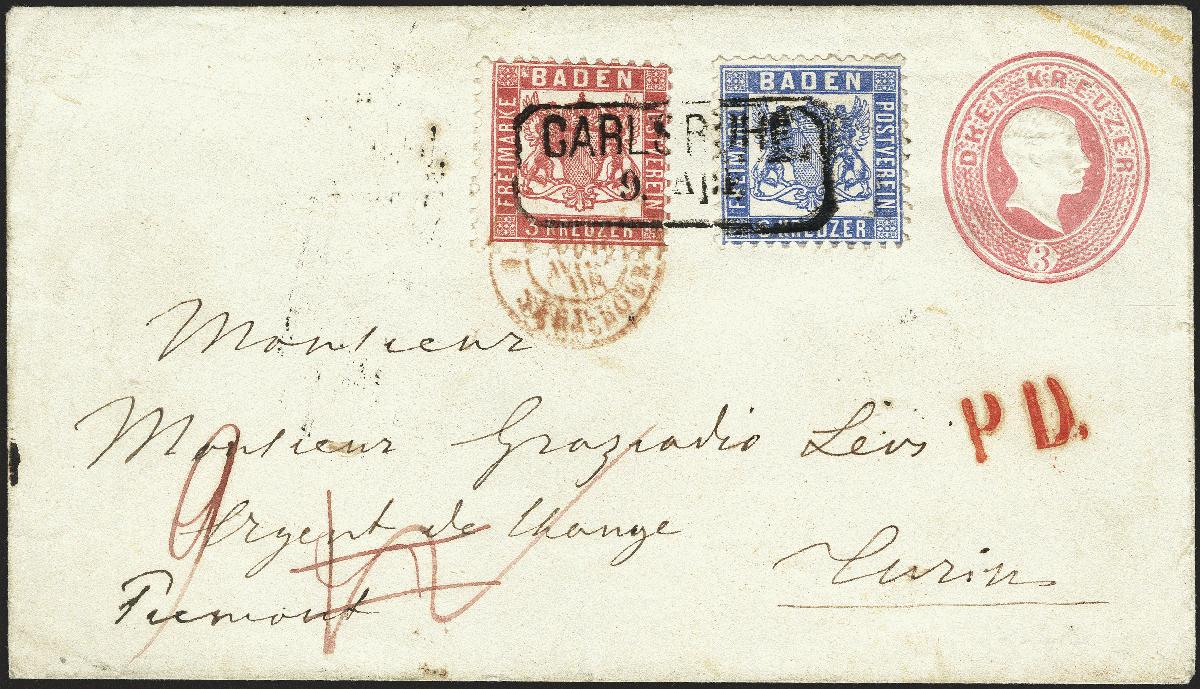 BADEN
FREIMARKE
POSTVEREIN
3 KREUZER
BADEN
FREIMARKE
POSTVEREIN
6 KREUZER
CARLSRUHE
9. Apr.
DREI KREUZER
3
STRASBOURG
Monsieur
Monsieur Graziadio Levi
P D.
Argent de Change
Turin
Piemont
9